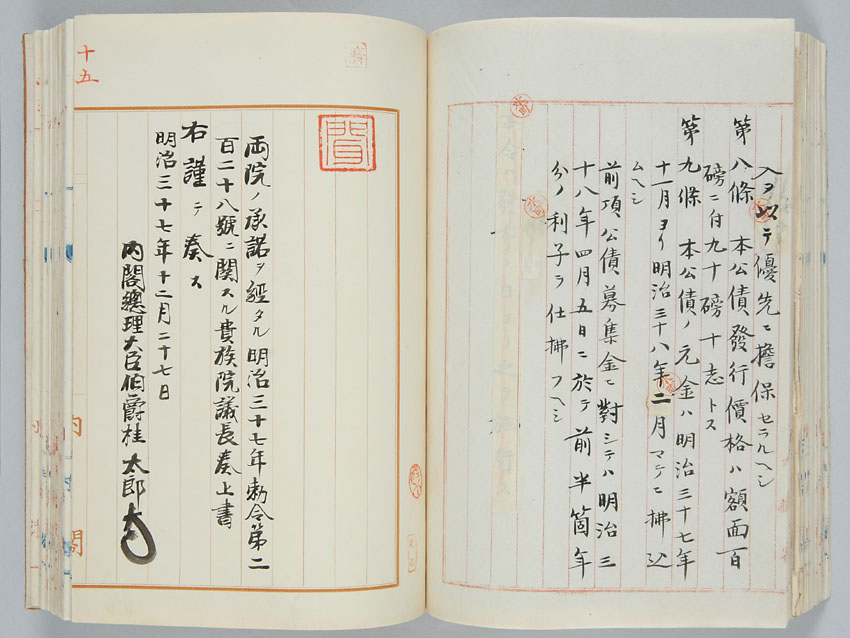 入ヲ以テ優先ニ擔保セラルヘシ
第八條 本公債發行價格ハ額面百
磅ニ付九十磅十志トス
第九條 本公債ノ元金ハ明治三十七年
十一月ヨリ明治三十八年二月マテニ拂込
ムヘシ
前項公債募集金ニ對シテハ明治三
十八年四月五日ニ於テ前半箇年
分ノ利子ヲ仕拂フヘシ
十五
両院ノ承諾ヲ經タル明治三十七年勅令第二
百二十八號ニ関スル貴族院議長奏上書
右謹テ奏ス
明治三十七年十二月二十七日
内閣總理大臣伯爵桂太郎
内閣